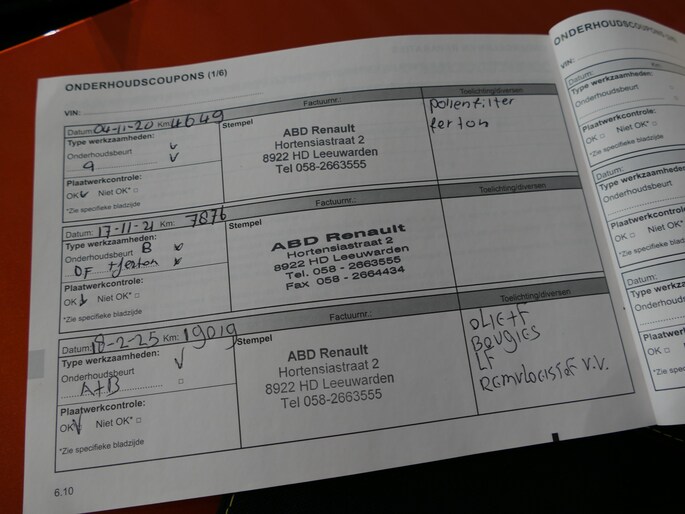 ONDERHOUDSCOUPONS (1/6)
VIN:
Datum: 04-11-20 Km: 4649
Type werkzaamheden:
Onderhoudsbeurt
Plaatwerkcontrole:
OK Niet OK*
*Zie specifieke bladzijde
Factuurnr.:
Stempel
ABD Renault
Hortensiastraat 2
8922 HD Leeuwarden
Tel 058-2663555
Toelichting/diversen
Pollenfilter
ferton
Datum: 17-11-21 Km: 7876
Type werkzaamheden:
Onderhoudsbeurt B
OF + ferton
Plaatwerkcontrole:
OK Niet OK*
*Zie specifieke bladzijde
Factuurnr.:
Stempel
ABD Renault
Hortensiastraat 2
8922 HD Leeuwarden
Tel. 058 - 2663555
Fax 058 - 2664434
Toelichting/diversen
Datum: 18-2-25 Km: 19019
Type werkzaamheden:
Onderhoudsbeurt
A+B
Plaatwerkcontrole:
OK Niet OK*
*Zie specifieke bladzijde
Factuurnr.:
Stempel
ABD Renault
Hortensiastraat 2
8922 HD Leeuwarden
Tel 058-2663555
Toelichting/diversen
OLIE+F
BOUGIES
LF
REMVLOEISTOF V.V.
6.10
ONDERHOUDSCOUPONS
VIN:
Datum: Km:
Type werkzaamheden:
Onderhoudsbeurt
Plaatwerkcontrole:
OK Niet OK*
*Zie specifieke bladzijde
Datum:
Type werkzaamheden
Onderhoudsbeurt
Plaatwerkcontrol
OK Niet OK
*Zie specifieke blad
Datum:
Type werkza
Onderhouds
Plaatwerkco
OK
*Zie specifi